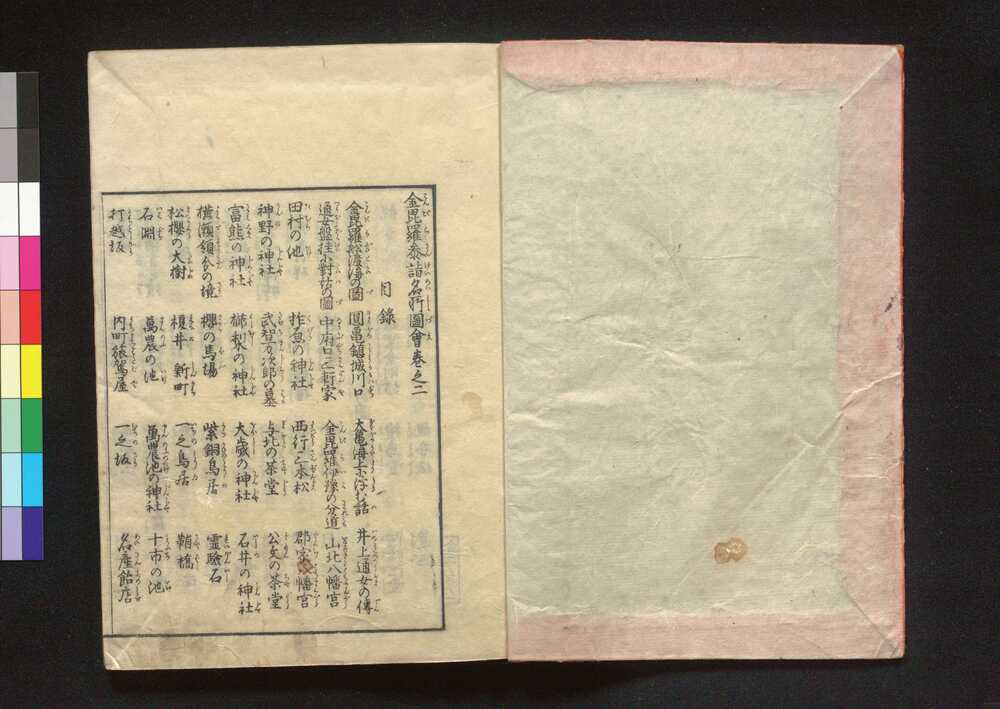 金毘羅参詣名所圖會巻之二
目録
金毘羅舩渡海の圖 圓亀鎮城川口 大亀海上に浮む話 井上通女の傳
通女盤珪小對話の圖 中府口三軒家 金毘羅伊豫の分道 山北八幡宮
田村の池 柞原の神社 西行二本松 郡家八幡宮
神野の神社 武智万次郎の墓 与北の茶堂 公文の茶堂
富熊の神社 櫛梨の神社 大歳の神社 石井の神社
横瀬領分の境 櫻の馬場 紫銅鳥居 霊驗石
松櫻の大樹 榎井 新町 一之鳥居 鞘橋
石淵 萬農の池 萬農池の神社 十市の池
打越坂 内町旅駕屋 一之坂 名産飴店